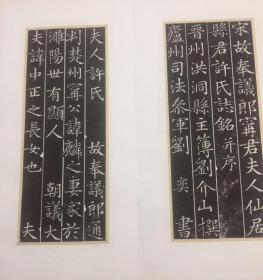 宋故奉議郎甯君夫人仙居
縣君許氏誌銘并序
晉州洪洞縣主簿劉介山撰
廬州司法叅軍劉 奕 書
夫人許氏 故奉議郎通
判楚州甯公諱麟之妻家於
濉陽世有顯人 朝議大
夫諱中正之長女也 夫